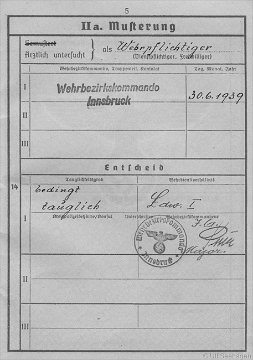 5
IIa. Musterung
Gemustert
Ärztlich untersucht } als Wehrpflichtiger
(Wehrpflichtiger, Freiwilliger)
Tag, Monat, Jahr
I Wehrbezirkskommando
Innsbruck
30.6.1939
II
III
Entscheid
14
Tauglichkeitsgrad
I bedingt
tauglich
Ldw. I
Wehrbezirkskommando
Innsbruck
Major.
II
III